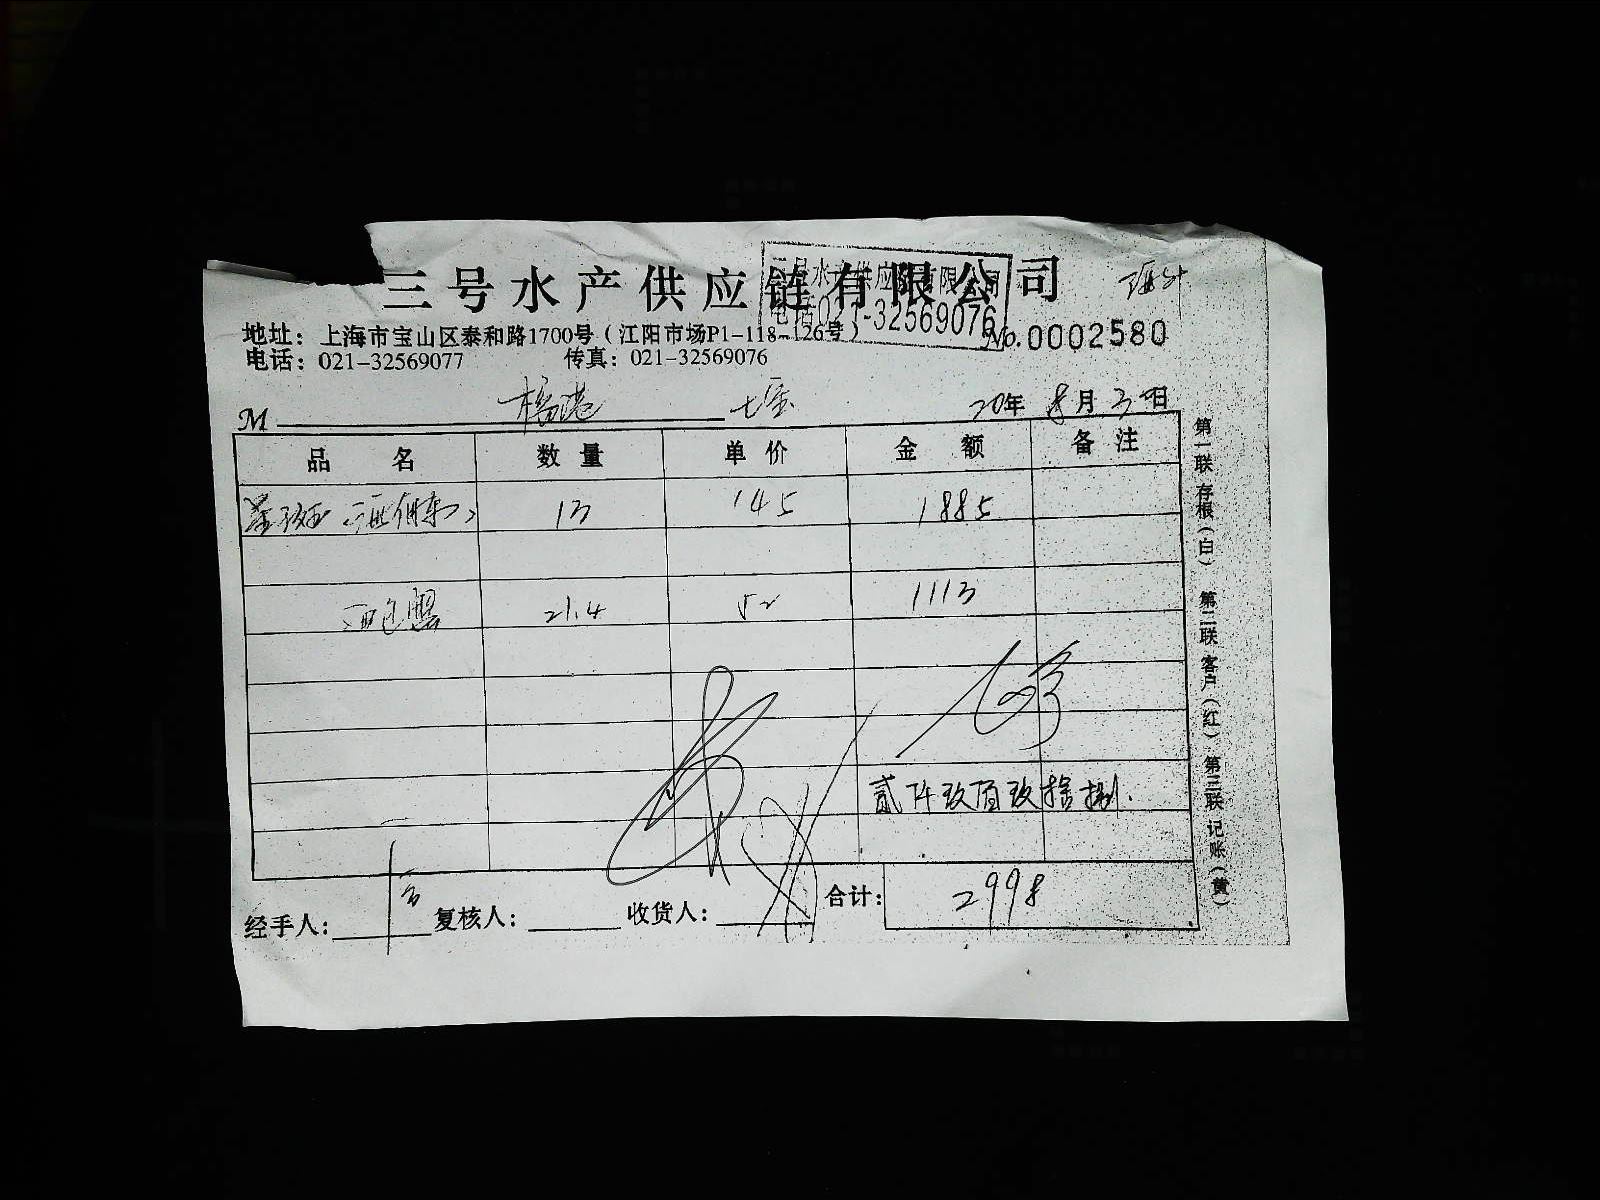 三号水产供应链有限公司
三号水产供应链有限公司
电话021-32569076
地址：上海市宝山区泰和路1700号（江阳市场P1-118-126号）
No.0002580
电话：021-32569077 传真：021-32569076
M 七宝 20年 8月 日
品名 数量 单价 金额 备注
13 145 1885
21.4 52 1113
贰仟玖佰玖拾捌.
经手人： 复核人： 收货人： 合计： 2998
第一联 存根（白） 第二联 客户（红） 第三联 记账（黄）